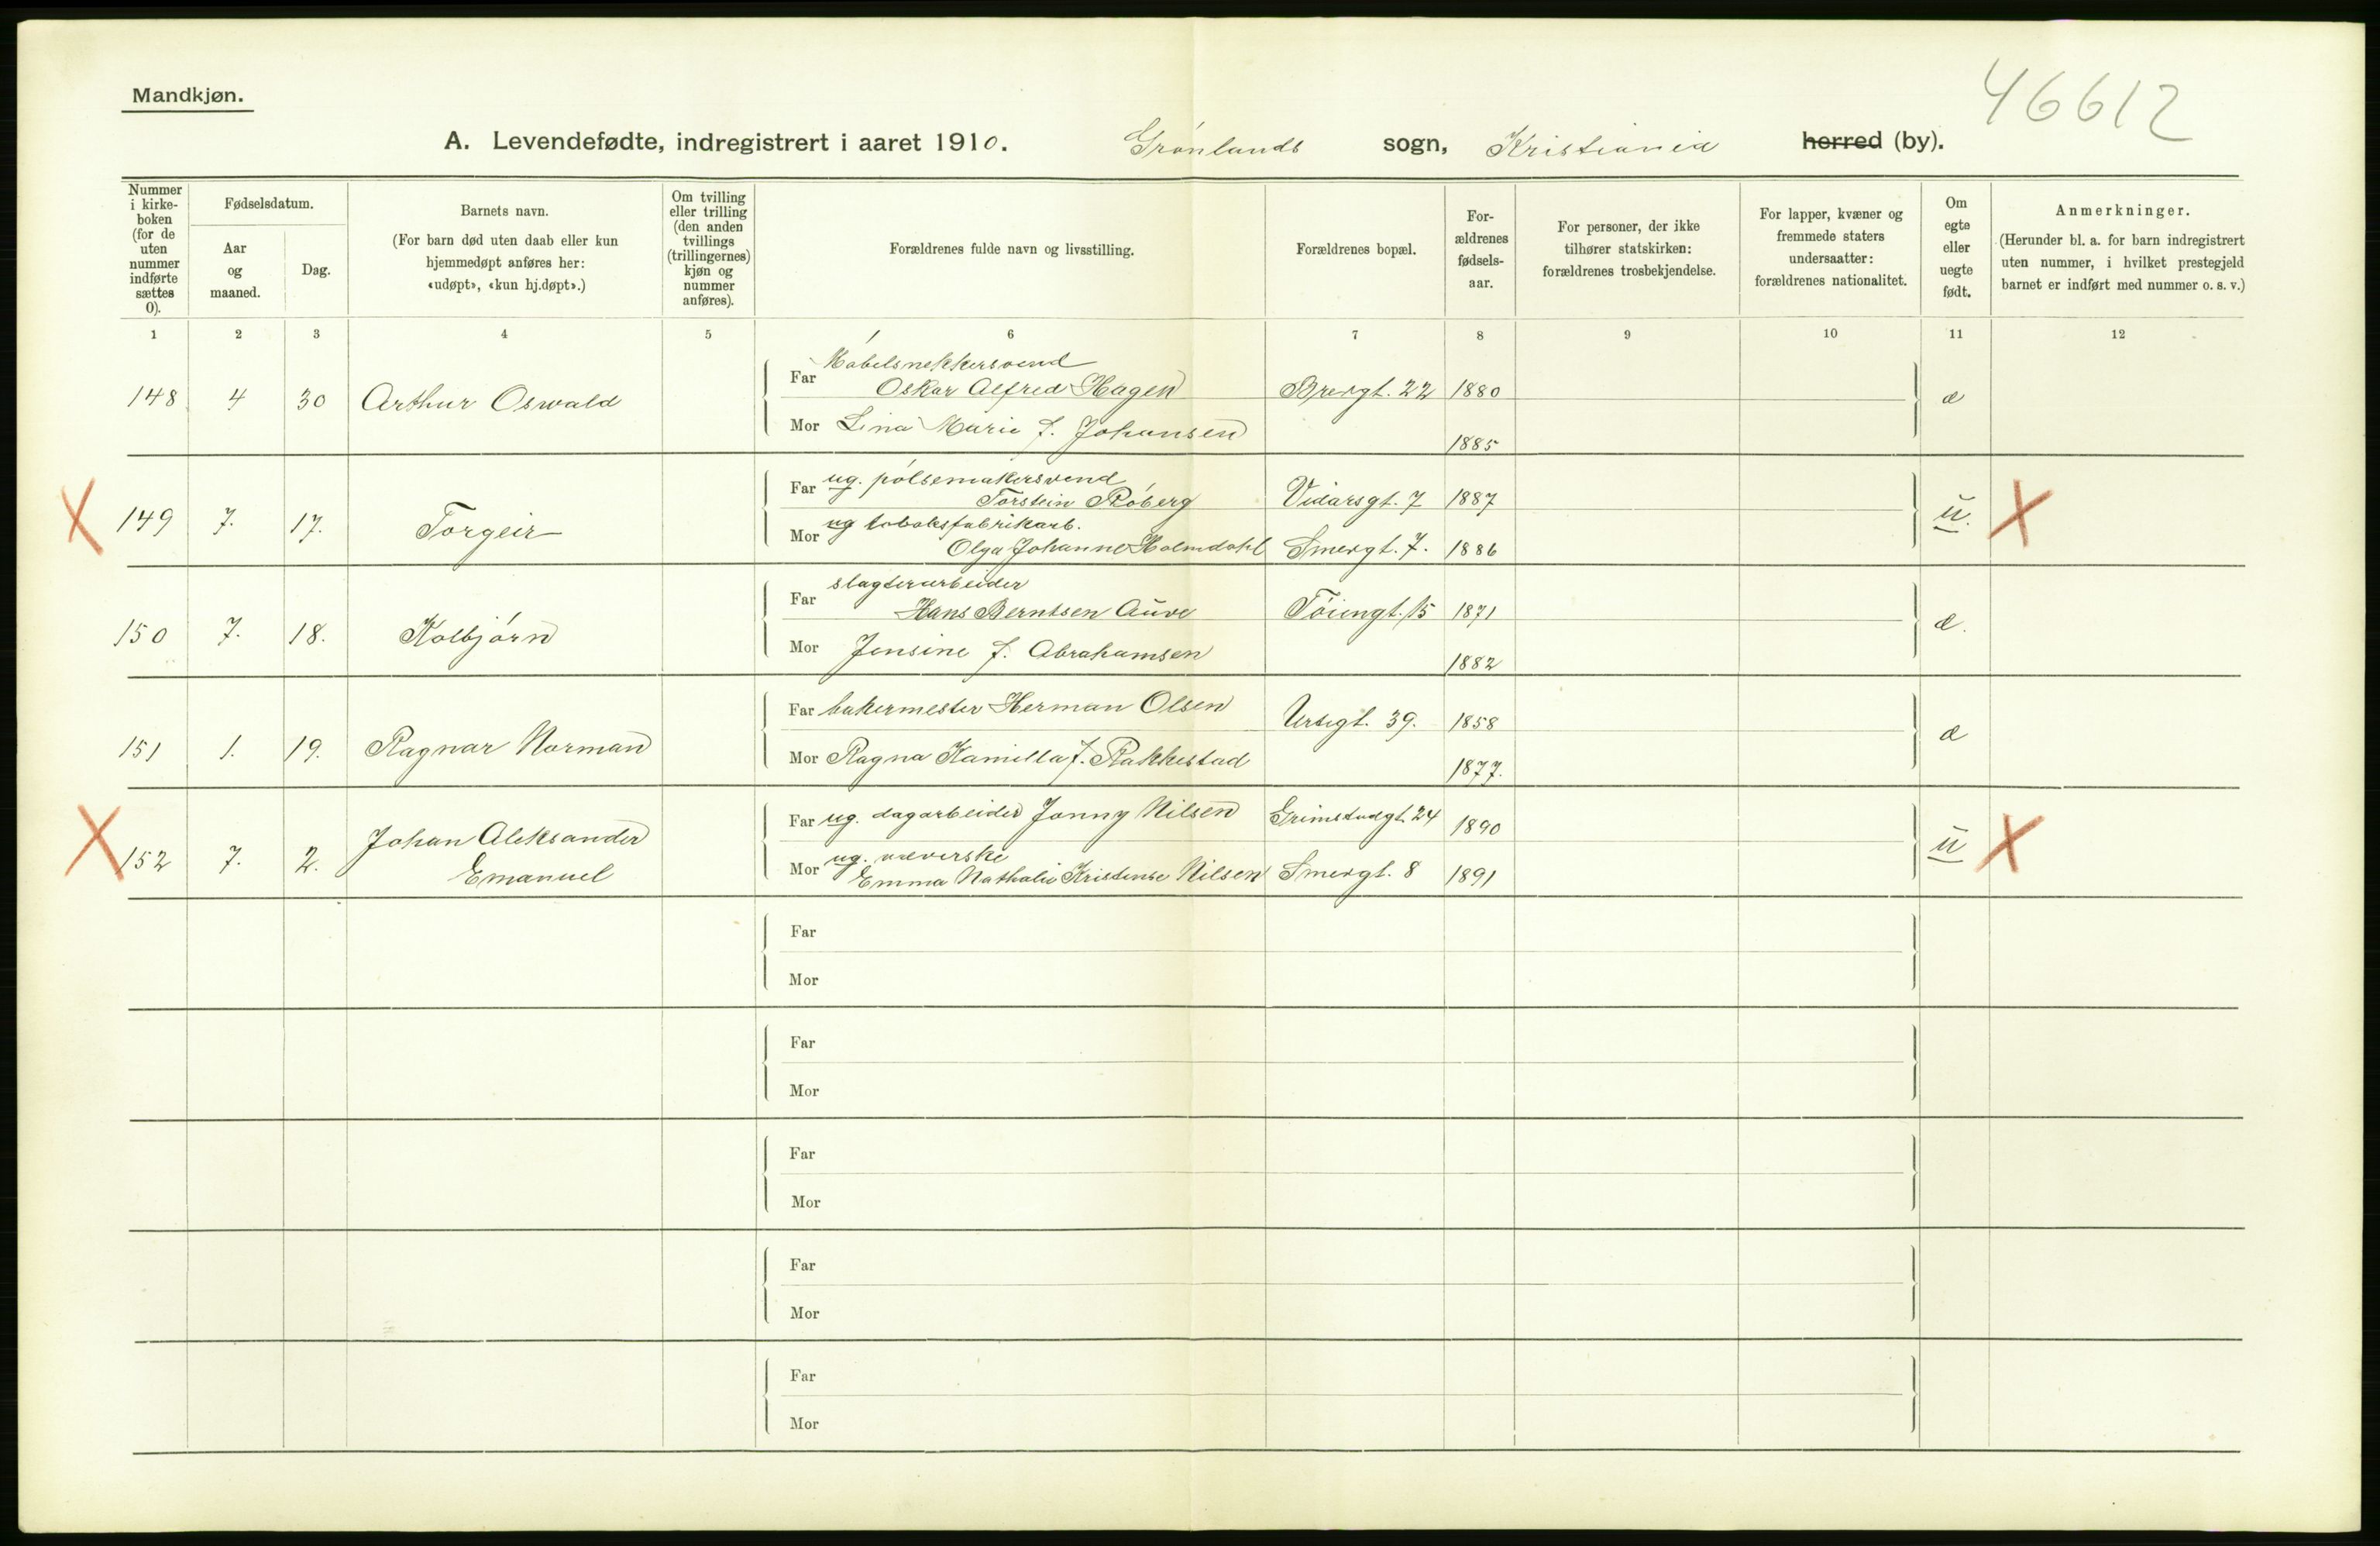 46612
Mandkjøn.
A. Levendefødte, indregistrert i aaret 1910. Grønlands sogn, Kristiania herred (by).
Nummer i kirkeboken (for de uten nummer indførte sættes 0).
Fødselsdatum.
Aar og maaned.
Dag.
Barnets navn.
(For barn død uten daab eller kun hjemmedøpt anføres her: «udøpt», «kun hj.døpt».)
Om tvilling eller trilling (den anden tvillings (trillingernes) kjøn og nummer anføres).
Forældrenes fulde navn og livsstilling.
Forældrenes bopæl.
For-ældrenes fødsels-aar.
For personer, der ikke tilhører statskirken: forældrenes trosbekjendelse.
For lapper, kvæner og fremmede staters undersaatter: forældrenes nationalitet.
Om egte eller uegte født.
Anmerkninger.
(Herunder bl. a. for barn indregistrert uten nummer, i hvilket prestegjeld barnet er indført med nummer o. s. v.)
1 2 3 4 5 6 7 8 9 10 11 12
Møbelsnekkersvend
148 4 30 Arthur Oswald Far Oskar Alfred Hagen 22 1880 æ
Mor Lina Marie f. Johansen 1885
ug. pølsemakersvend
X 149 7. 17. Torgeir Far Torstein Røberg Vidarsgt. 7 1887 ŭ. X
ug tobaksfabrikarb.
Mor Olga Johanne Holmdahl Smergt. 7. 1886
slagterarbeider
150 7. 18. Kolbjørn Far Hans Berntsen Auve Tøiengt. 15 1871 æ.
Mor Jensine f. Abrahamsen 1882
151 1. 19. Ragnar Norman Far bakermester Herman Olsen Urtegt. 39. 1858 æ
Mor Ragna Kamilla f. Rakkestad 1877.
X 152 7. 2. Johan Aleksander Emanuel Far ug. dagarbeider Jonny Nilsen Grimstadgt. 24 1890 ŭ X
ug. væverske
Mor Emma Nathalie Kristense Nilsen Smergt. 8 1891
Far
Mor
Far
Mor
Far
Mor
Far
Mor
Far
Mor